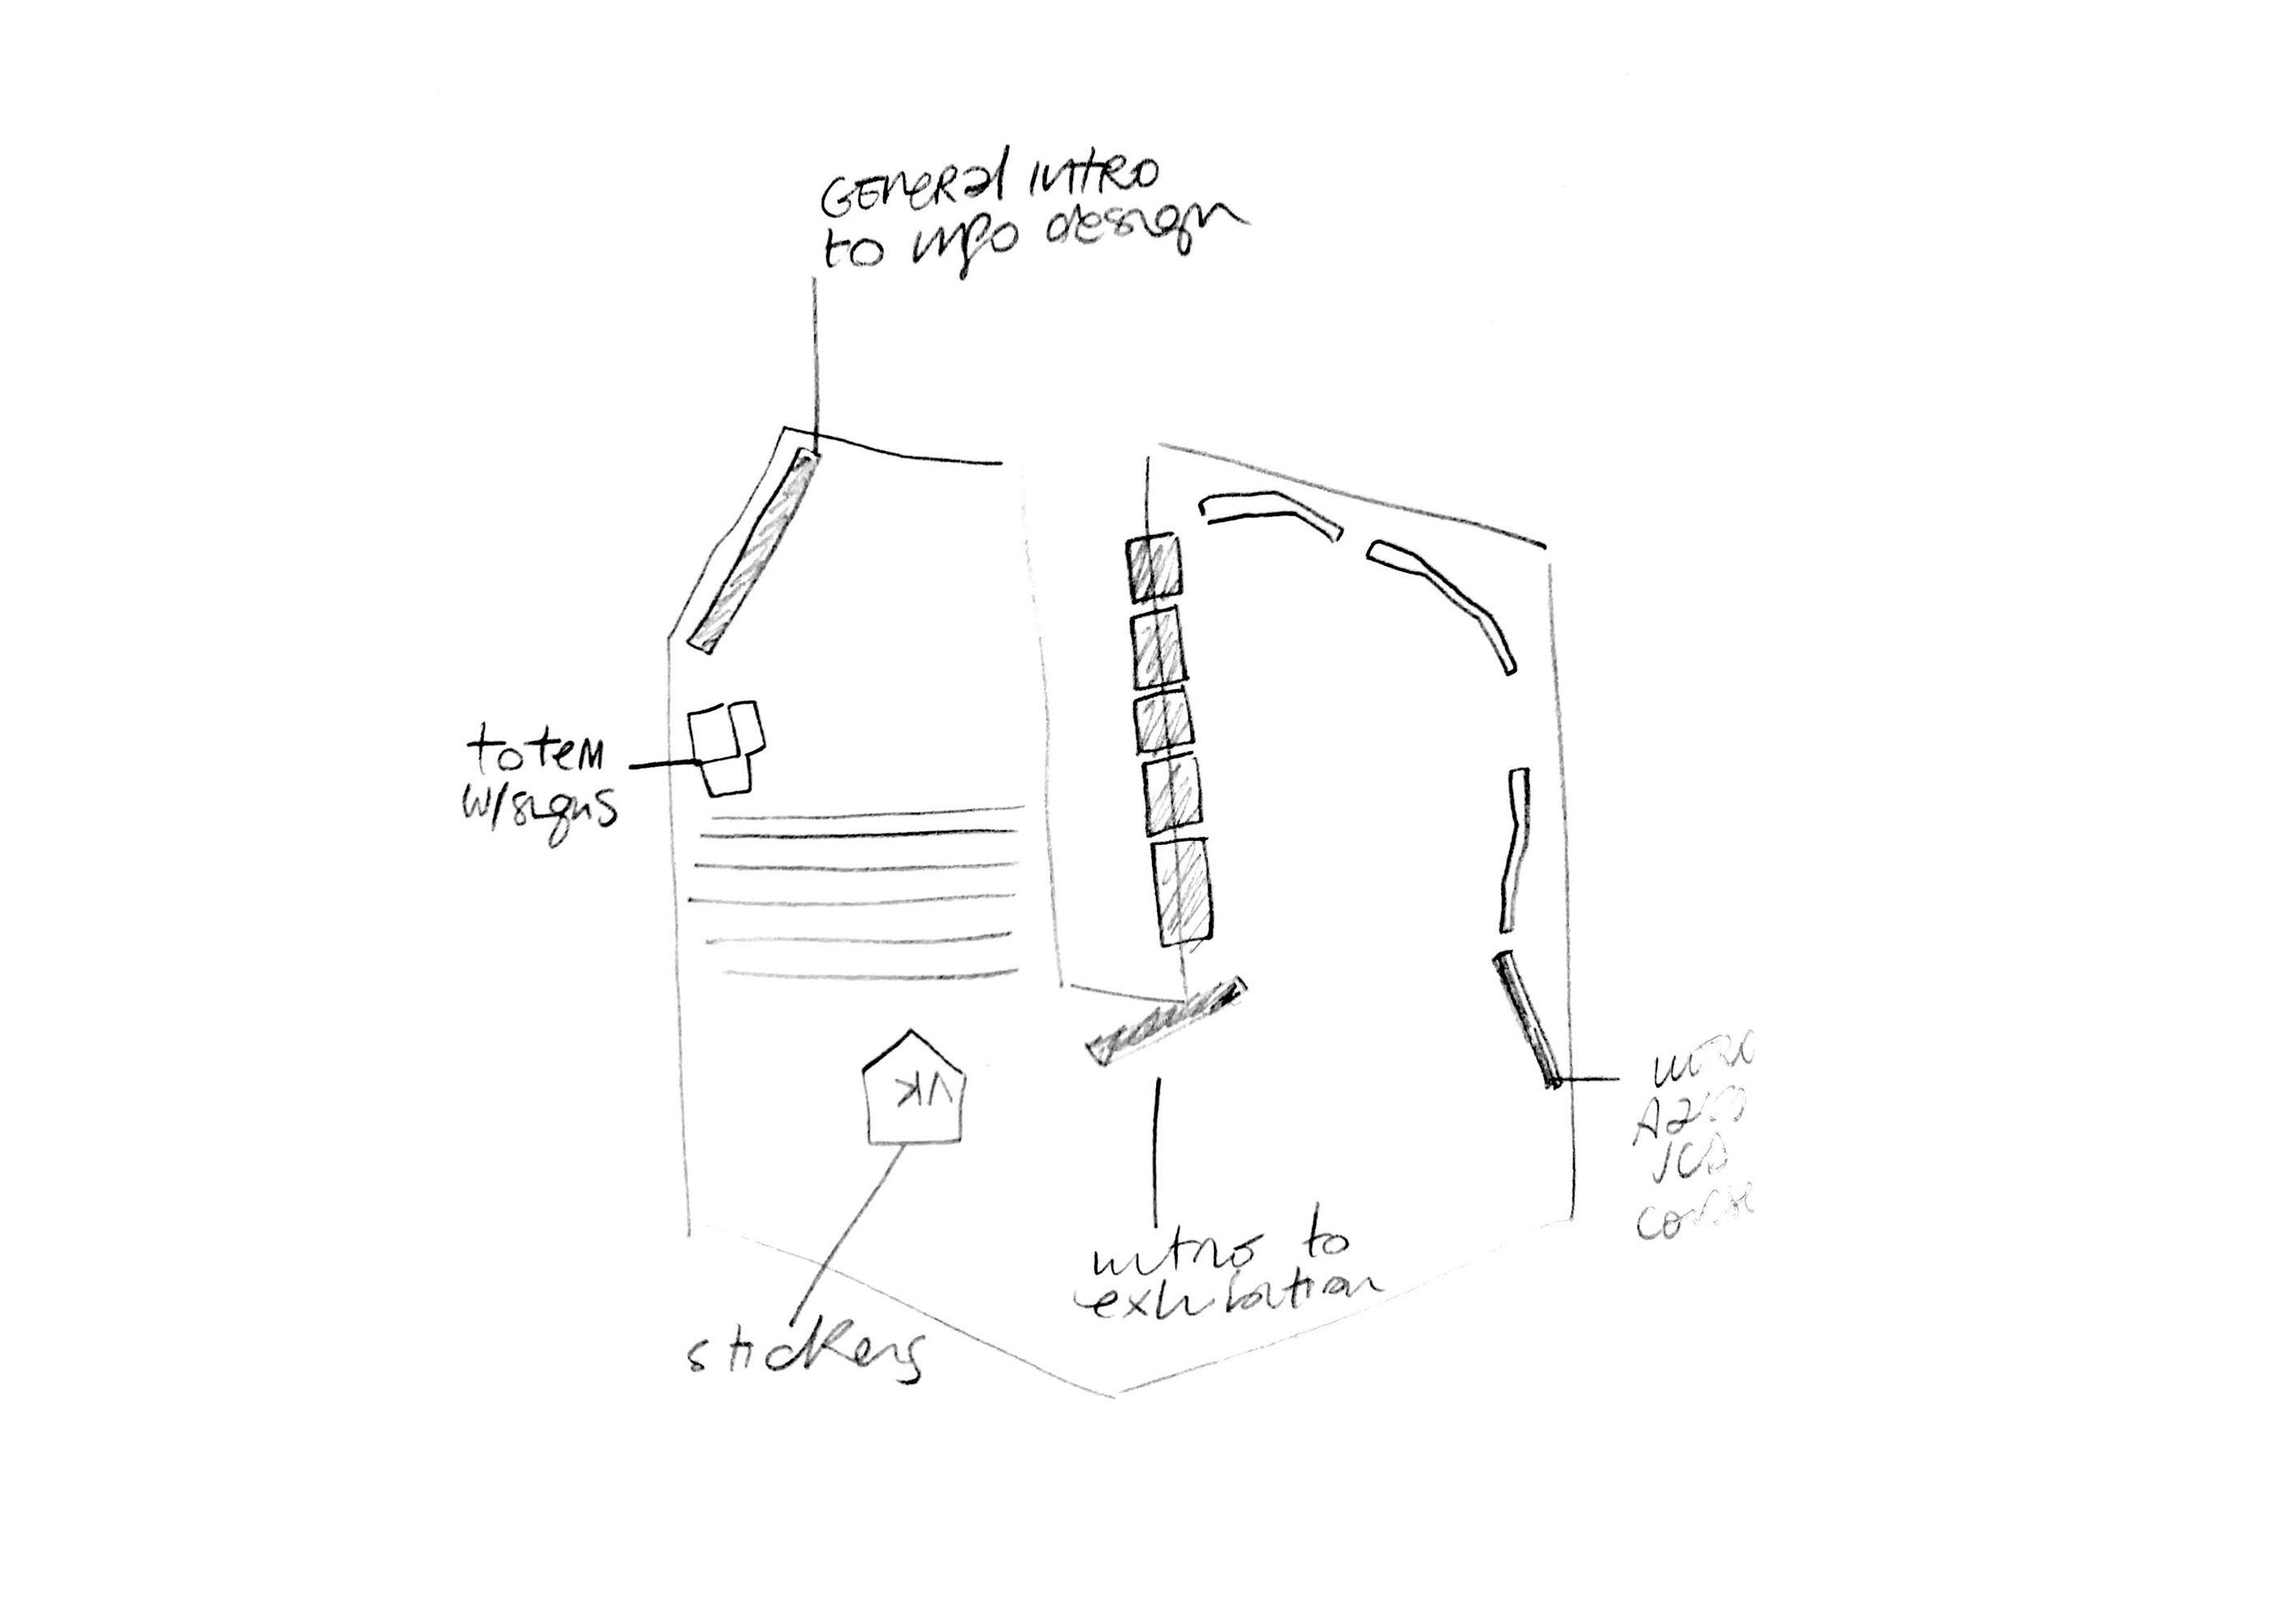 General intro
to info design
totem
w/signs
VK
stickers
intro to
exhibition
intro